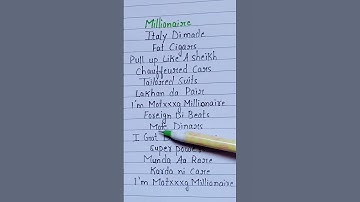 Millionaire
Italy Di made
Fat Cigars
Pull up Like A sheikh
Chauffeured Cars
Tailored Suits
Lakhan da Pair
I'm Motxxxg Millionaire
Foreign Di Beats
Mote Dinars
I Got
Super power
Munda Aa Rare
Karda ni Care
I'm Motxxxg Millionaire